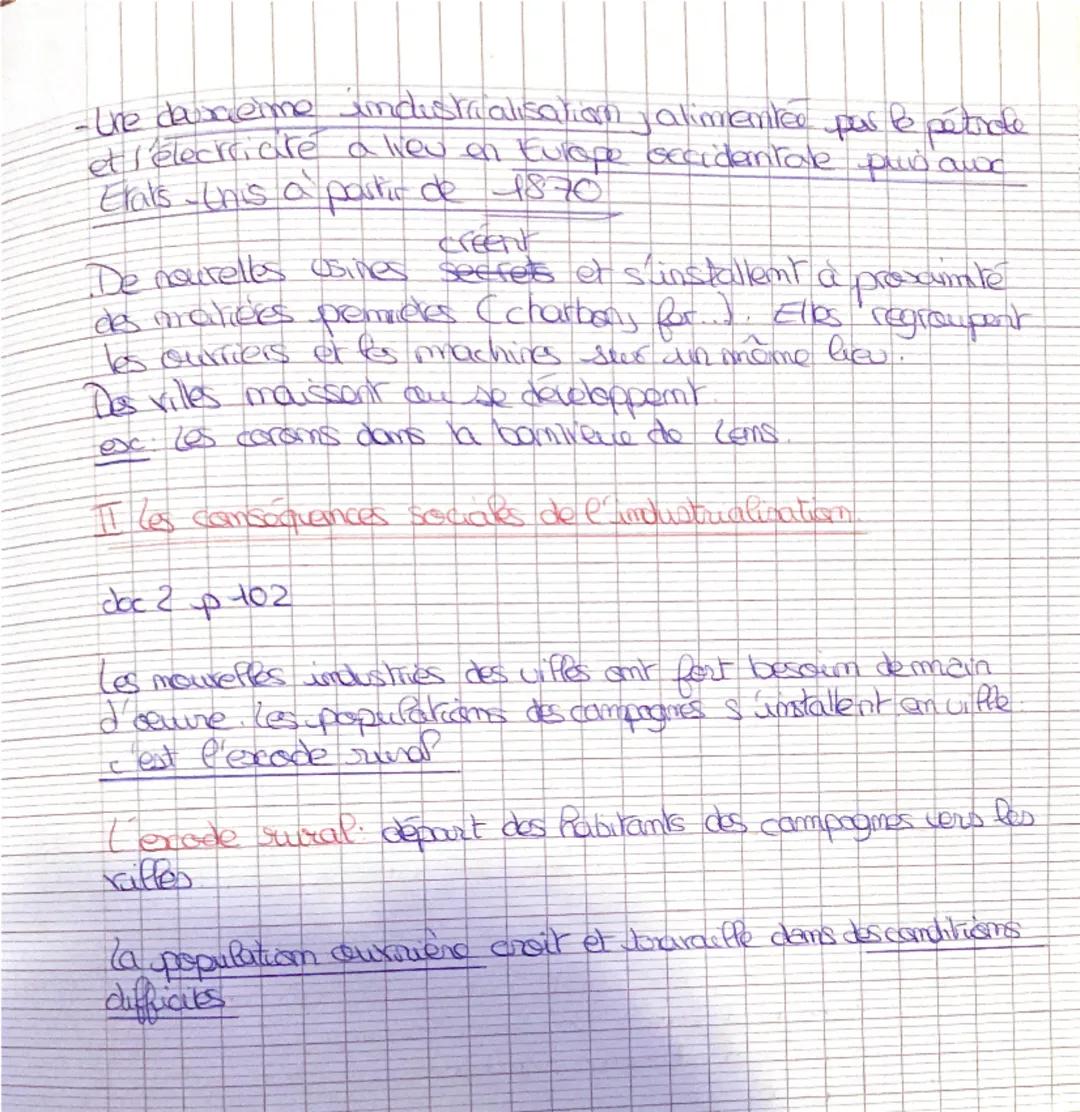 - Une deuxième industrialisation, alimentée par le pétrole
et l'électricité a lieu en Europe occidentale puis aux
Etats-Unis à partir de 1870
créent
De nouvelles usines secrets et s'installent à proximité
des matières premières (charbons, fer...). Elles regroupent
les ouvriers et les machines sur un même lieu.
Des villes naissent ou se développent.
ex: Les corons dans la banlieue de Lens.
II Les conséquences sociales de l'industrialisation.
doc 2 p 102
Les nouvelles industries des villes ont fort besoin de main
d'œuvre. Les populations des campagnes s'installent en ville
c'est l'exode rural
L'exode rural: départ des habitants des campagnes vers les
villes
La population ouvrière croit et travaille dans des conditions
difficiles